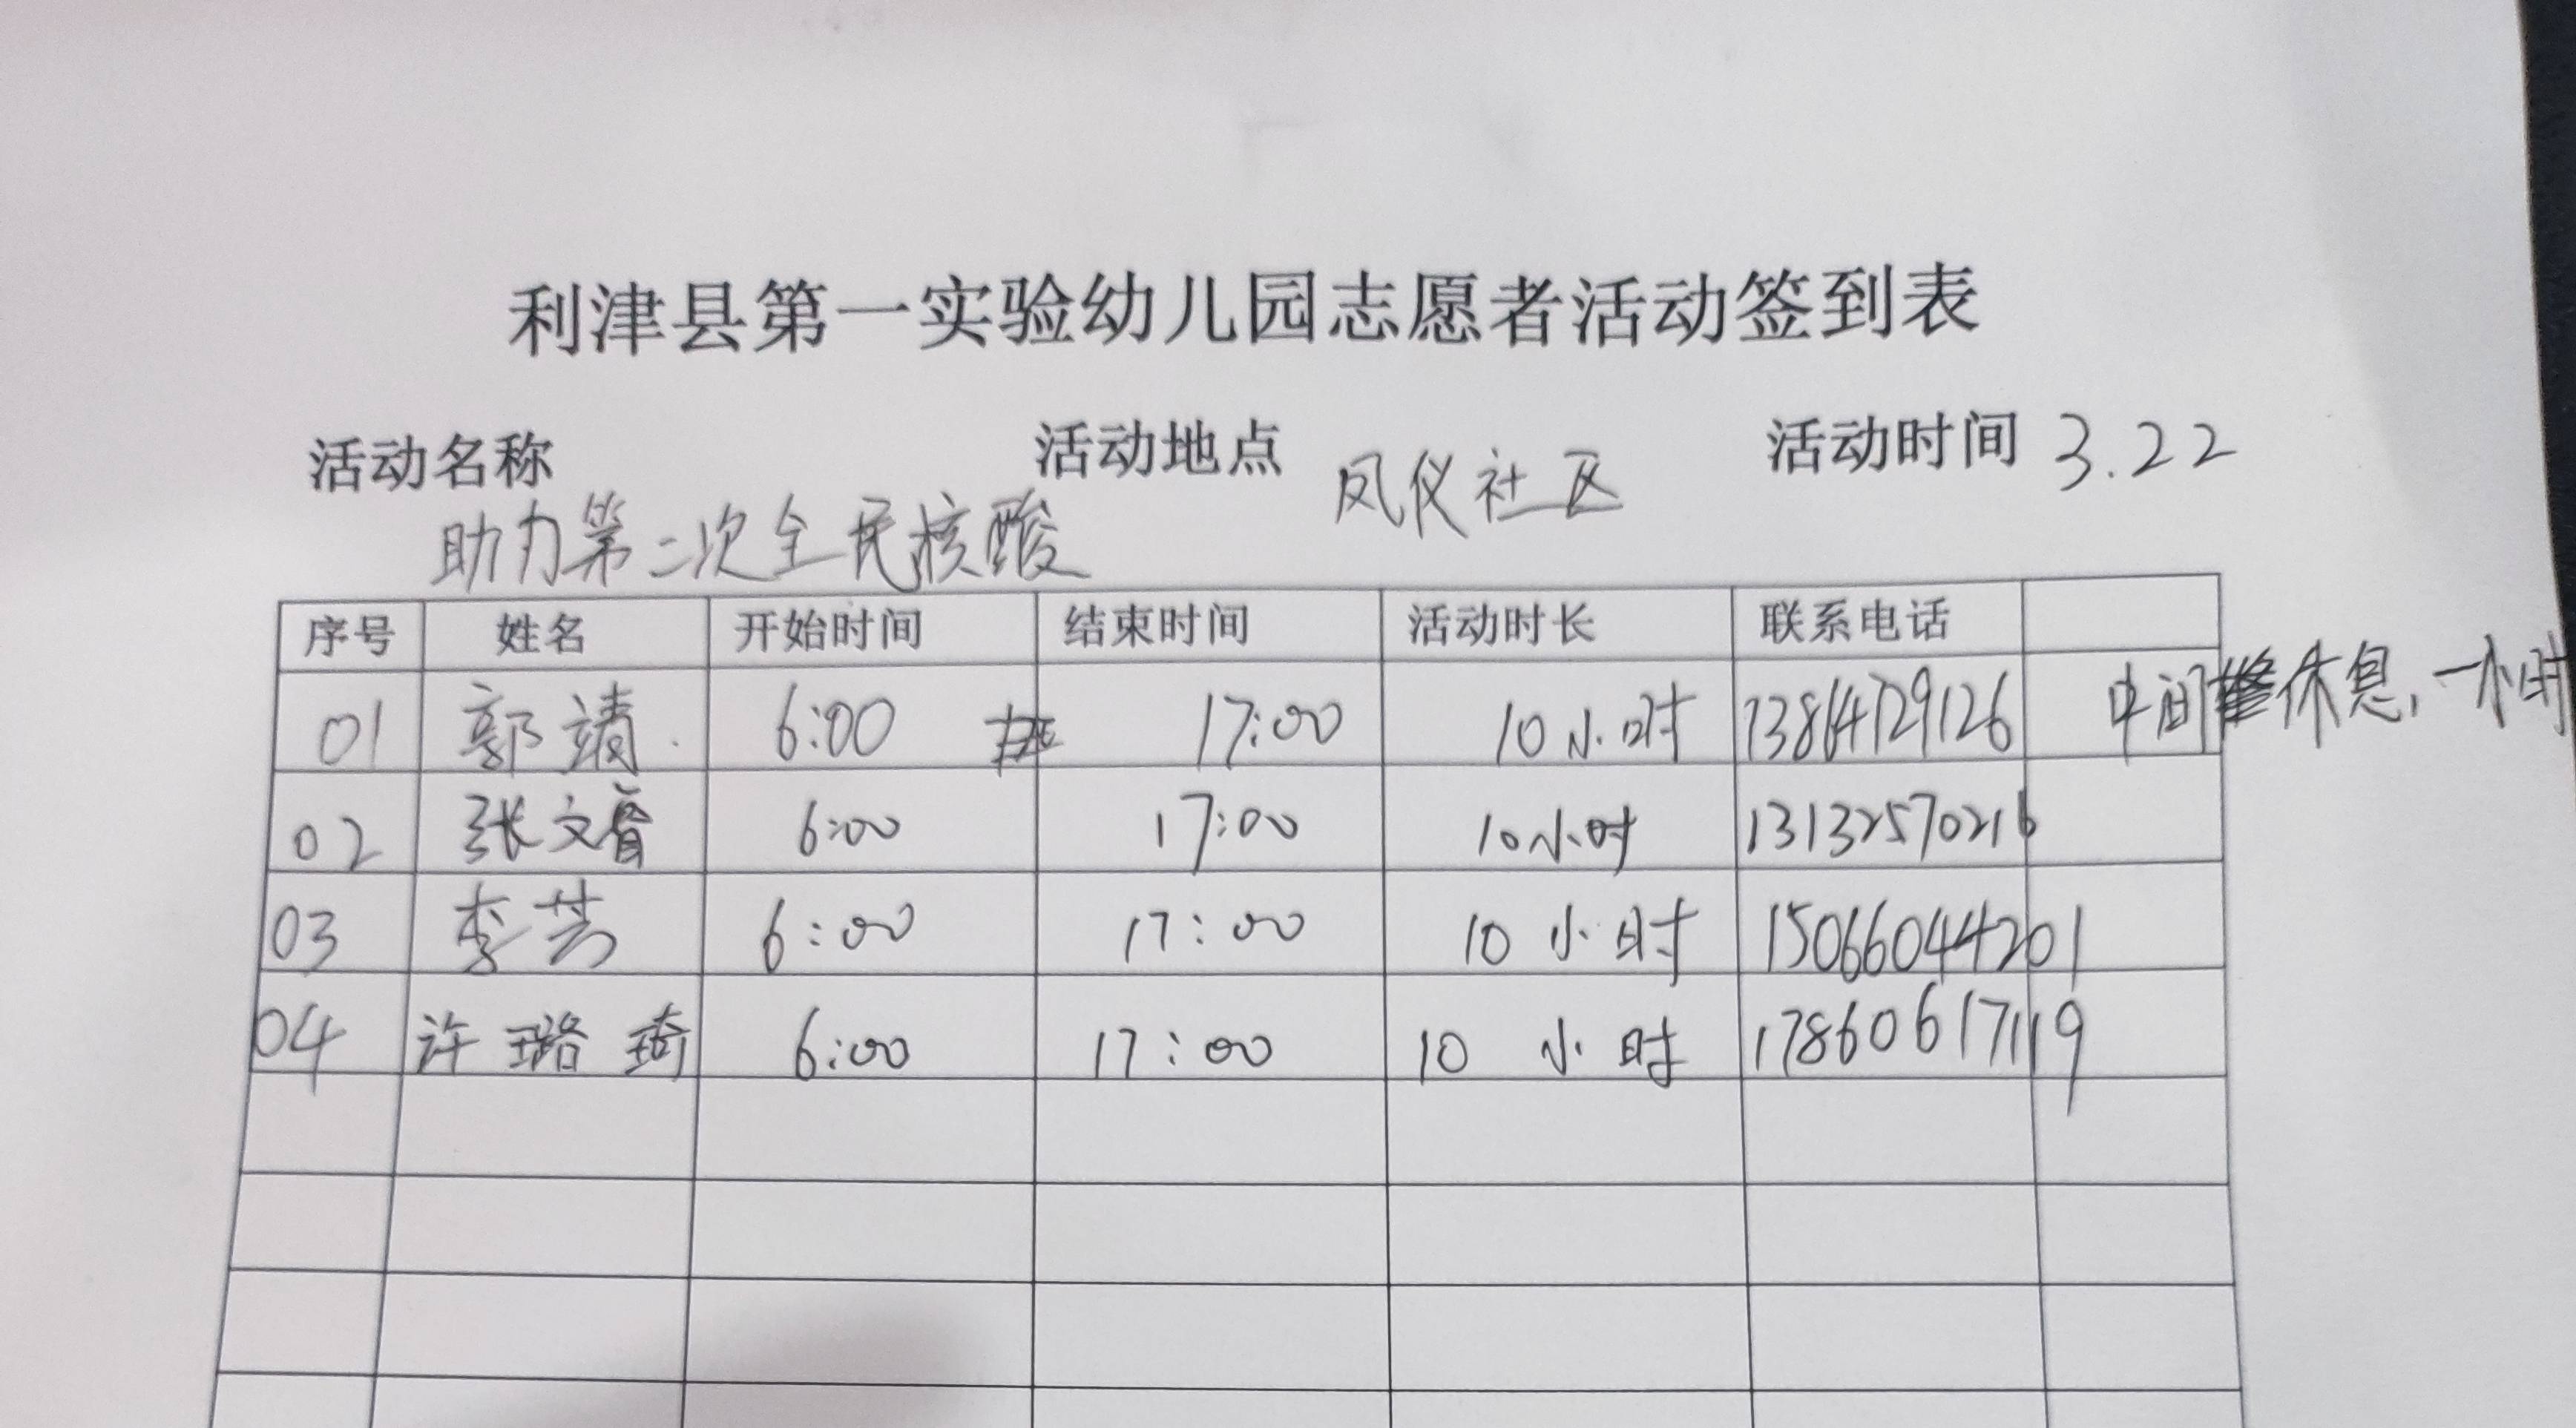 利津县第一实验幼儿园志愿者活动签到表
活动名称 活动地点 活动时间 3.22
助力第二次全民核酸 凤仪社区
序号 姓名 开始时间 结束时间 活动时长 联系电话
01 郭靖 6:00 17:00 10小时 13864729126 中间休息,一小时
02 张文睿 6:00 17:00 10小时 13132570216
03 李芸 6:00 17:00 10小时 15066044201
04 许璐琦 6:00 17:00 10小时 17860617119